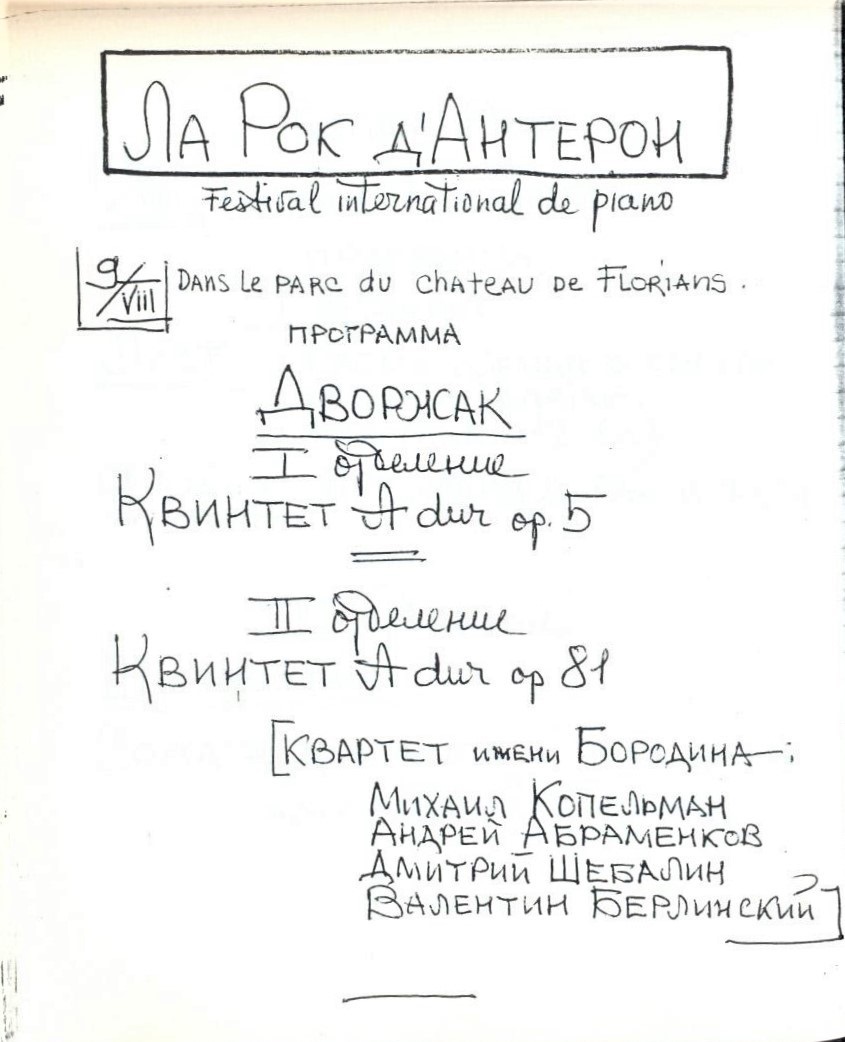 ЛА РОК Д'АНТЕРОН
Festival international de piano
9/VIII DANS LE PARC du chateau DE FLORIANS.
ПРОГРАММА
ДВОРЖАК
I отделение
КВИНТЕТ A dur op. 5
II отделение
КВИНТЕТ A dur op 81
[КВАРТЕТ имени БОРОДИНА—:
МИХАИЛ КОПЕЛЬМАН
АНДРЕЙ АБРАМЕНКОВ
ДМИТРИЙ ШЕБАЛИН
ВАЛЕНТИН БЕРЛИНСКИЙ]